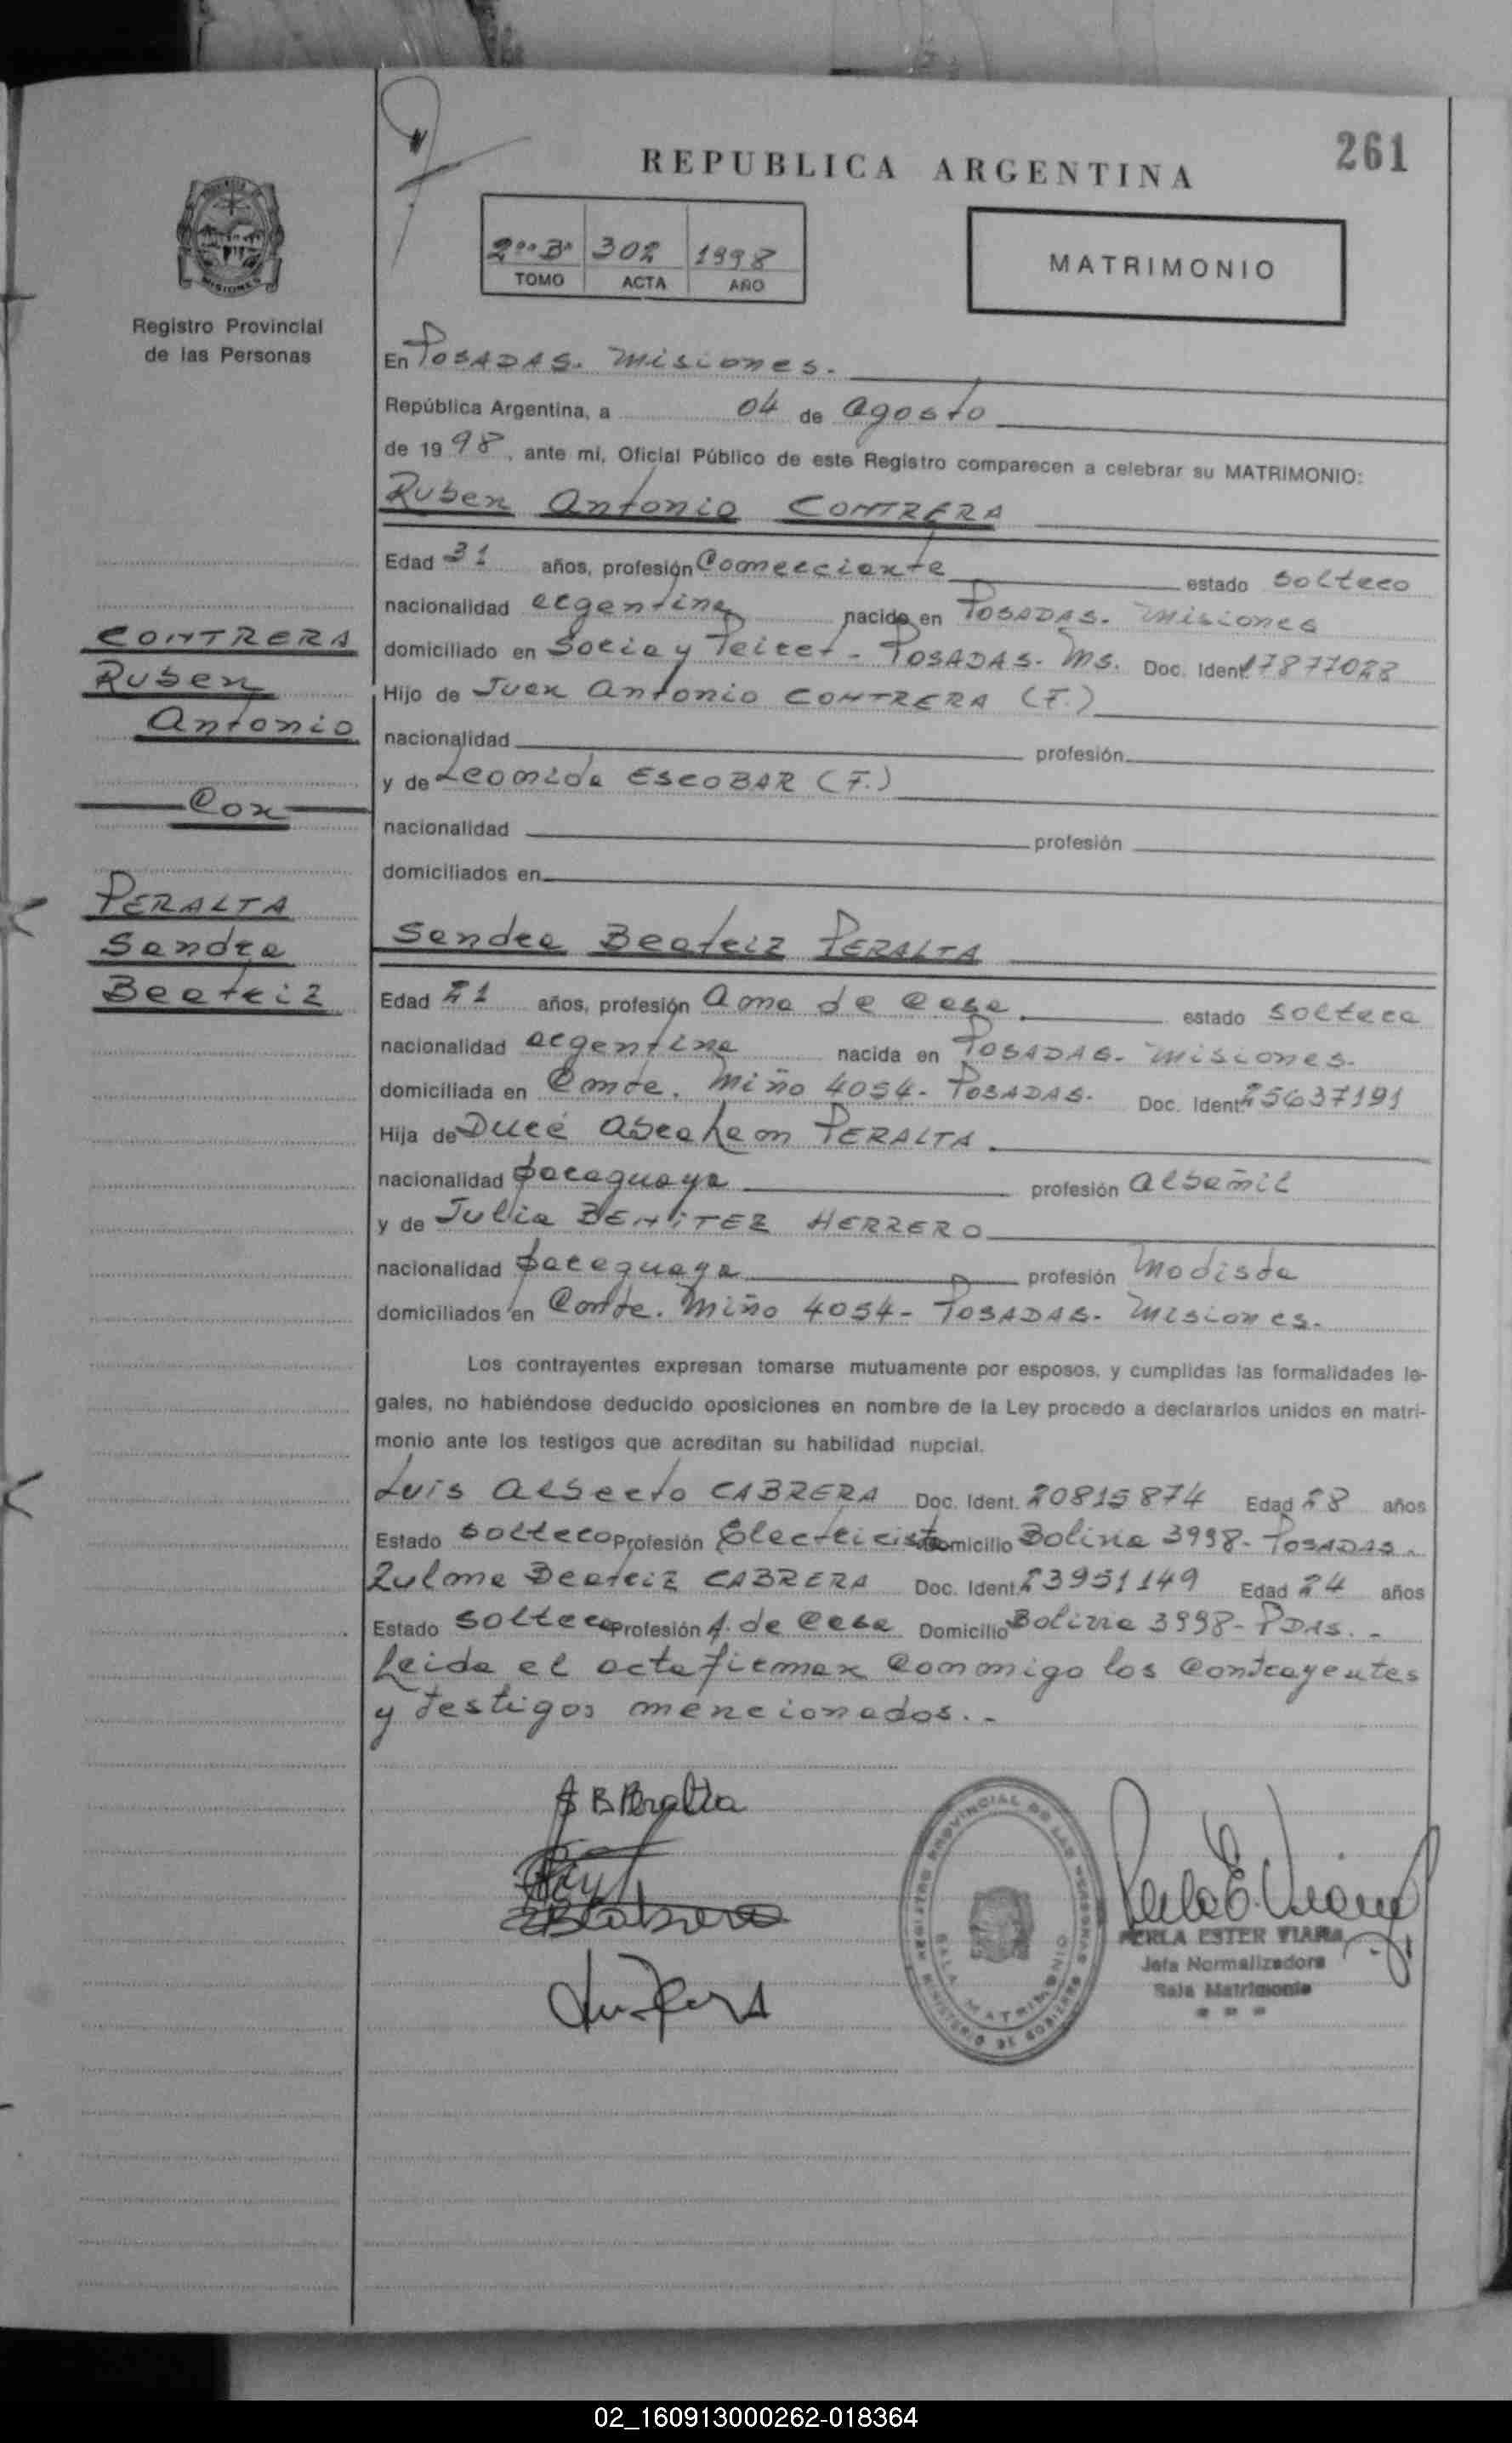 261
REPUBLICA ARGENTINA
2do Bo 302 1998
TOMO ACTA AÑO
MATRIMONIO
MISIONES
Registro Provincial
de las Personas
CONTRERA
Ruben
Antonio
Con
PERALTA
Sandra
Beatriz
En POSADAS. Misiones.
República Argentina, a 04 de Agosto
de 1998, ante mi, Oficial Público de este Registro comparecen a celebrar su MATRIMONIO:
Ruben Antonio CONTRERA
Edad 31 años, profesión Comerciante estado Soltero
nacionalidad argentina nacido en POSADAS. Misiones
domiciliado en Soria y - POSADAS. Ms. Doc. Ident. 17877028
Hijo de Juan Antonio CONTRERA (F.)
nacionalidad profesión
y de Leonida ESCOBAR (F.)
nacionalidad profesión
domiciliados en
Sandra Beatriz PERALTA
Edad 21 años, profesión Ama de Casa estado Soltera
nacionalidad argentina nacida en POSADAS. Misiones.
domiciliada en Comte. Miño 4054- POSADAS. Doc. Ident. 25637191
Hija de Abraham PERALTA
nacionalidad paraguaya profesión albañil
y de Julia BENITEZ HERRERO
nacionalidad paraguaya profesión Modista
domiciliados en Comte. Miño 4054- POSADAS. Misiones.
Los contrayentes expresan tomarse mutuamente por esposos, y cumplidas las formalidades le-
gales, no habiéndose deducido oposiciones en nombre de la Ley procedo a declararlos unidos en matri-
monio ante los testigos que acreditan su habilidad nupcial.
Luis Alberto CABRERA Doc. Ident. 20815874 Edad 28 años
Estado Soltero Profesión Electricista Domicilio Bolivia 3998- POSADAS.
Zulma Beatriz CABRERA Doc. Ident. 23951149 Edad 24 años
Estado Soltera Profesión A. de Casa Domicilio Bolivia 3998- PDAS.-
Leida el acta firman conmigo los Contrayentes
y testigos mencionados.-
S B Peralta
REGISTRO PROVINCIAL DE LAS PERSONAS
SALA MATRIMONIO
MINISTERIO DE GOBIERNO
PERLA ESTER VIANA
Jefa Normalizadora
Sala Matrimonio
02_160913000262-018364